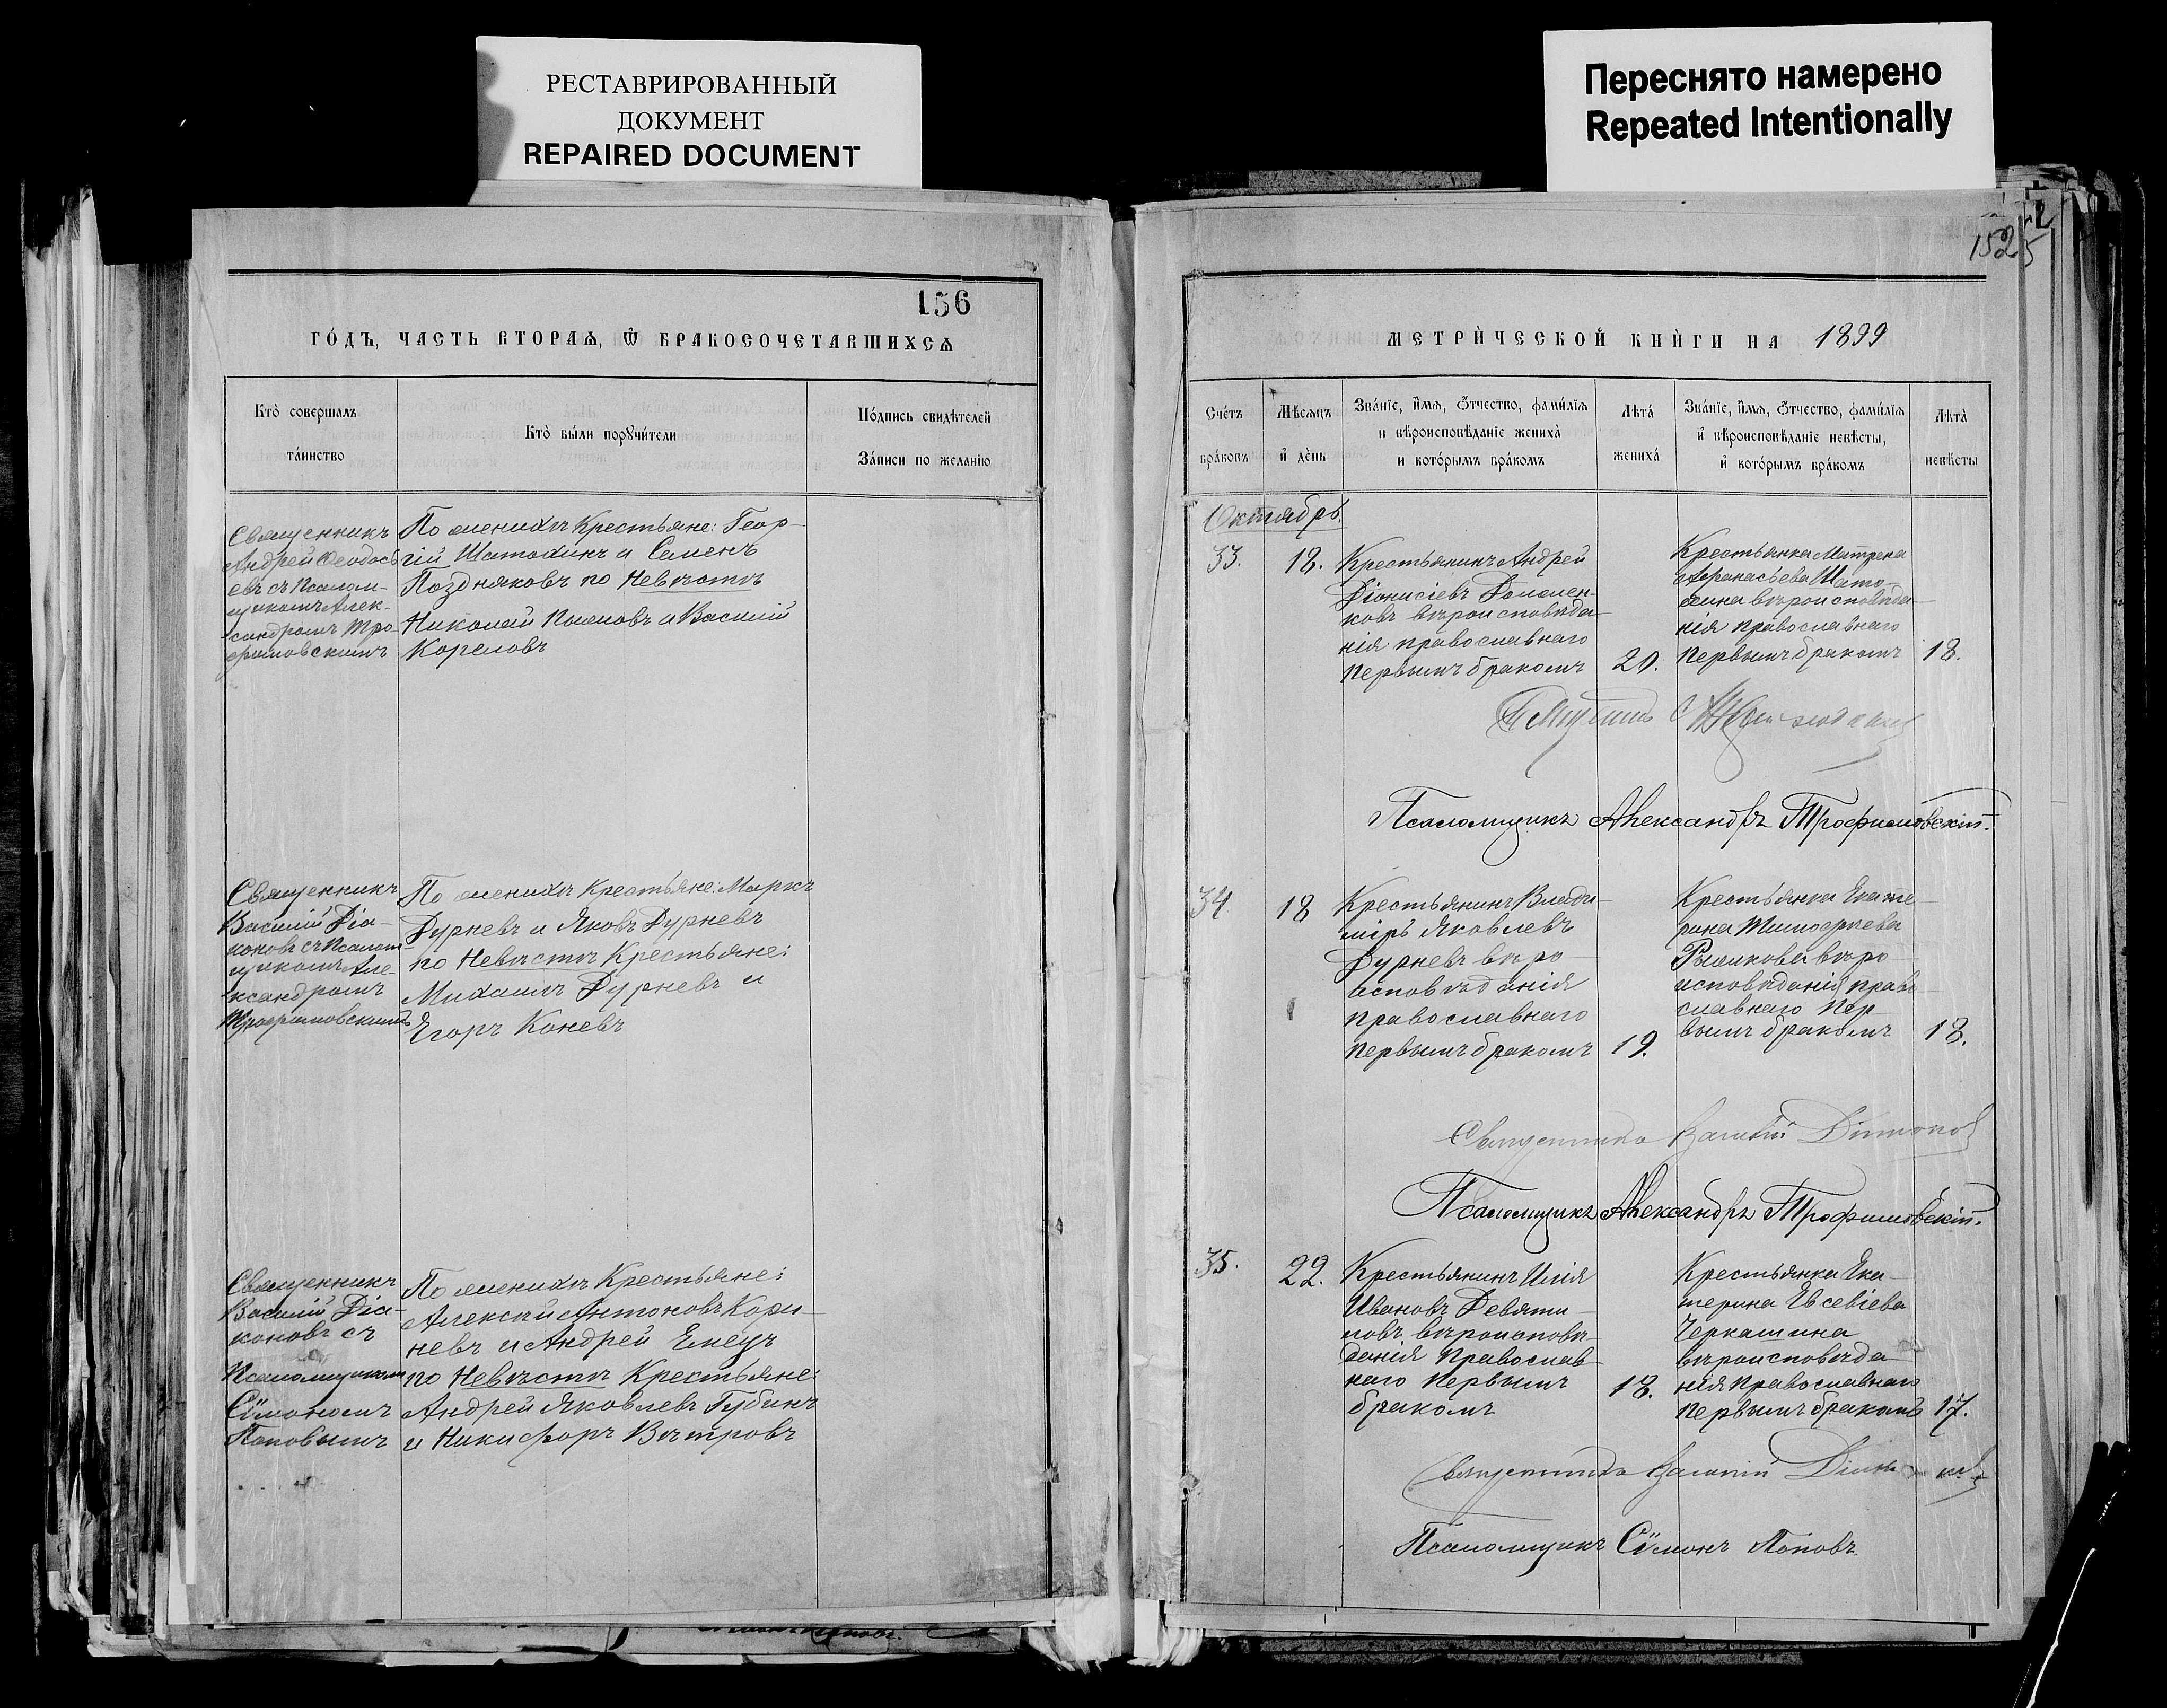 РЕСТАВРИРОВАННЫЙ
ДОКУМЕНТ
REPAIRED DOCUMENT
Переснято намерено
Repeated Intentionally
156
ГО́ДЪ, ЧАСТЬ ВТОРАѦ, Ѡ҆ БРАКОСОЧЕТАВШИХСѦ
Кто̀ совершалъ
та́инство
Кто̀ бы́ли порꙋчи́тели
По́дпись свидѣтелей
За́писи по жела́нїю
Священникъ
Андрей Феодось
евъ съ Псалом-
щикомъ Алек-
сандромъ Тро
фимовскимъ
По женихѣ Крестьяне: Геор-
гій Шатохинъ и Семенъ
Поздняковъ по Невѣстѣ
Николай Пыховъ и Василій
Кореловъ
Священникъ
Василій Діа-
коновъ съ Псалом-
щикомъ Але-
ксандромъ
Трофимовскимъ
По женихѣ Крестьяне: Маркъ
Дурневъ и Яковъ Дурневъ
по Невѣстѣ Крестьяне:
Михаилъ Дурневъ и
Егоръ Коневъ
Священникъ
Василій Діа-
коновъ съ
Псаломщикомъ
Сѵмономъ
Поповымъ
По женихѣ Крестьяне:
Алексѣй Антоновъ Кори-
невъ и Андрей Емецъ
по Невѣстѣ Крестьяне:
Андрей Яковлевъ Губинъ
и Никифоръ Вѣтровъ
152
МЕТРИ́ЧЕСКОЙ КНИ́ГИ НА 1899
Сче́тъ
бра́ковъ
Мѣсѧцъ
и҆ де́нь
Зва́нїе, и҆́мѧ, ѻ҆́тчество, фами́лїѧ
и вѣроисповѣ́данїе жениха̀
и кото́рымъ бра́комъ
Лѣта̀
жениха́
Зва́нїе, и҆́мѧ, ѻ҆́тчество, фами́лїѧ
и҆ вѣроисповѣ́данїе невѣ́сты,
и҆ кото́рымъ бра́комъ
Лѣта̀
невѣ́сты
Октябрь.
33.
18.
Крестьянинъ Андрей
Діонисіевъ Доможен-
ковъ вѣроисповѣда-
нія православнаго
первымъ бракомъ
20.
Крестьянка Матрена
Афанасьева Шато-
хина вѣроисповѣда-
нія православнаго
первымъ бракомъ
18.
Псаломщикъ Александръ Трофимовскій.
34.
18
Крестьянинъ Влади-
міръ Яковлевъ
Дурневъ вѣро-
исповѣданія
православнаго
первымъ бракомъ
19.
Крестьянка Екате-
рина Тимофеева
Рыжикова вѣро-
исповѣданія право-
славнаго пер-
вымъ бракомъ
18.
Священникъ Василій Діаконовъ
Псаломщикъ Александръ Трофимовскій.
35.
22.
Крестьянинъ Илія
Ивановъ Девяти-
ловъ, вѣроисповѣ-
данія Православ-
наго Первымъ
бракомъ
18.
Крестьянка Ека-
терина Евсевіева
Черкашина
вѣроисповѣда-
нія Православнаго
первымъ бракомъ
17.
Священникъ Василій Діаконовъ
Псаломщикъ Сѵмонъ Поповъ.